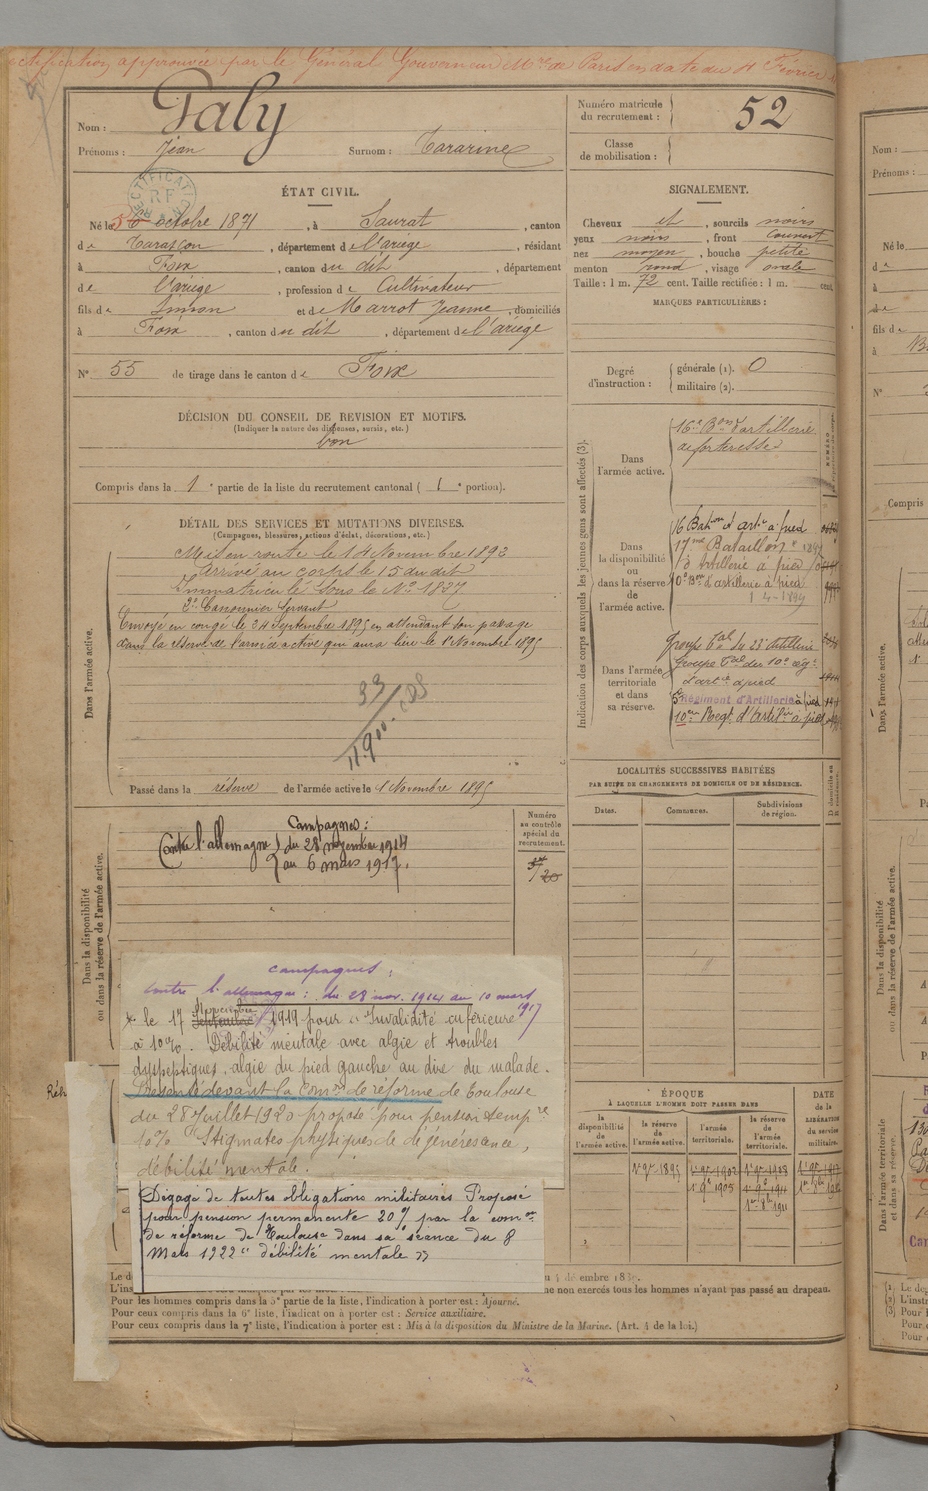 Rectification approuvée par le Général Gouverneur Mre de Paris en date du 11 Février
Nom : Galy
Prénoms : Jean Surnom : Cararine
Numéro matricule
du recrutement : 52
Classe
de mobilisation :
ÉTAT CIVIL.
RECTIFICATION
R F
Né le 5 6 octobre 1871, à Saurat, canton
de Tarascon, département de l'ariège, résidant
à Foix, canton du dit, département
de l'ariège, profession de Cultivateur
fils de Simon et de Marrot Jeanne, domiciliés
à Foix, canton du dit, département de l'ariège
N° 55 de tirage dans le canton de Foix
SIGNALEMENT.
Cheveux et, sourcils noirs
yeux noirs, front couvert
nez moyen, bouche petite
menton rond, visage ovale
Taille : 1 m. 72 cent. Taille rectifiée : 1 m. cent.
MARQUES PARTICULIÈRES :
Degré
d'instruction :
générale (1). 0
militaire (2).
DÉCISION DU CONSEIL DE REVISION ET MOTIFS.
(Indiquer la nature des dispenses, sursis, etc.)
bon
Compris dans la 1e partie de la liste du recrutement cantonal ( 1e portion).
DÉTAIL DES SERVICES ET MUTATIONS DIVERSES.
(Campagnes, blessures, actions d'éclat, décorations, etc.)
Dans l'armée active.
Mis en route le 14 Novembre 1892
Arrivé au corps le 15 du dit
Immatriculé sous le No 1837
2e Canonnier Servant
Envoyé en congé le 24 Septembre 1895 en attendant son passage
dans la réserve de l'armée active qui aura lieu le 1er Novembre 1895
Passé dans la réserve de l'armée active le 1 Novembre 1895
Indication des corps auxquels les jeunes gens sont affectés (3).
Dans
l'armée active.
16e Bon d'artillerie
de forteresse
Dans
la disponibilité
ou
dans la réserve
de
l'armée active.
16 Bation d'artie à pied
17me Bataillon
d'Artillerie à pied
10e Bon d'artillerie à pied
Dans l'armée
territoriale
et dans
sa réserve.
Groupe Tal du 23e Artillerie
Groupe Tal du 10e rég.
d'artie à pied
5e Régiment d'Artillerie à pied
10me Regt d'Artilie à pied
LOCALITÉS SUCCESSIVES HABITÉES
PAR SUITE DE CHANGEMENTS DE DOMICILE OU DE RÉSIDENCE.
Dates.
Communes.
Subdivisions
de région.
Dans la disponibilité
ou dans la réserve de l'armée active.
Campagnes :
Contre l'allemagne du 28 novembre 1914
au 6 mars 1917.
Numéro
au contrôle
spécial du
recrutement.
campagnes :
contre l'allemagne : du 28 nov. 1914 au 10 mars
1917
le 17 Septembre 1919 pour Invalidité inférieure
à 10%. Débilité mentale avec algie et troubles
dyspeptiques, algie du pied gauche au dire du malade.
Présenté devant la Comon de réforme de Toulouse
du 28 Juillet 1920 proposé pour pension tempre
10% Stigmates physiques de dégénérescence,
débilité mentale.
Dégagé de toutes obligations militaires Proposé
pour pension permanente 20% par la comon
de réforme de Toulouse dans sa séance du 8
Mars 1922 " débilité mentale "
ÉPOQUE
À LAQUELLE L'HOMME DOIT PASSER DANS
la
disponibilité
de
l'armée active.
la réserve
de
l'armée active.
l'armée
territoriale.
la réserve
de
l'armée
territoriale.
DATE
de la
LIBÉRATION
du service
militaire.
Pour les hommes compris dans la 5e partie de la liste, l'indication à porter est : Ajourné.
Pour ceux compris dans la 6e liste, l'indication à porter est : Service auxiliaire.
Pour ceux compris dans la 7e liste, l'indication à porter est : Mis à la disposition du Ministre de la Marine. (Art. 4 de la loi.)